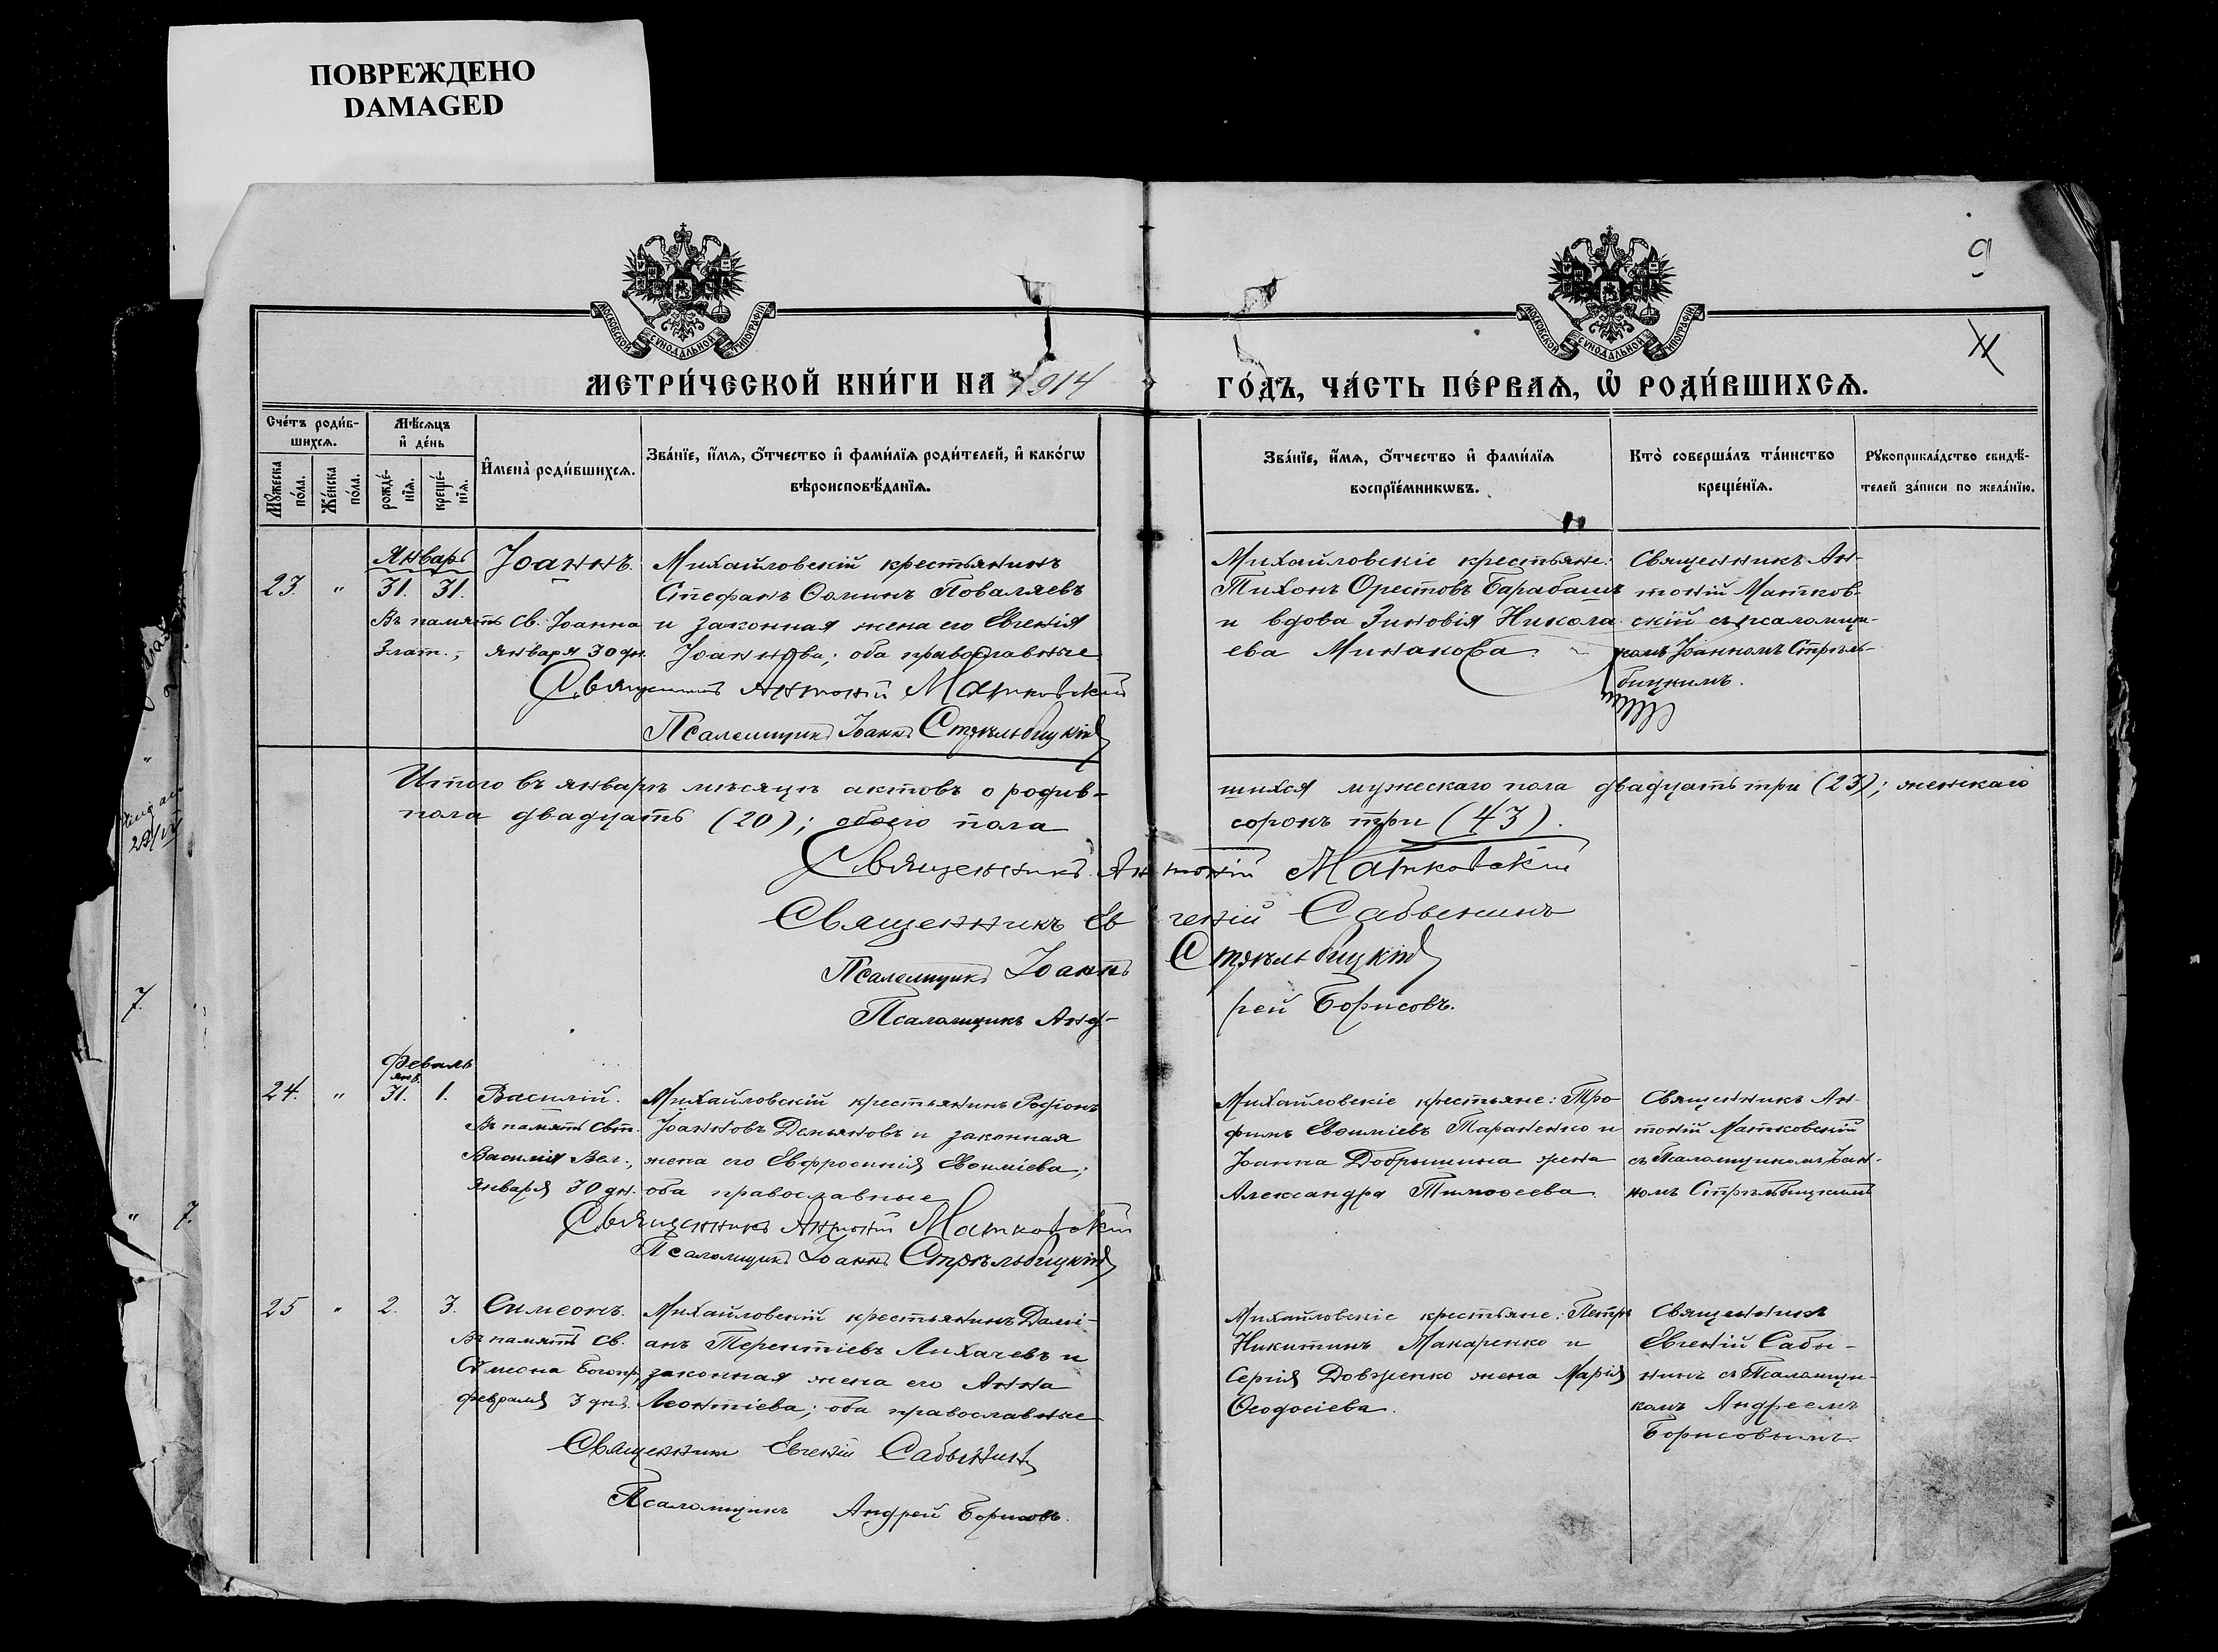 ПОВРЕЖДЕНО
DAMAGED
МОСКОВСКОЙ СѴНОДАЛЬНОЙ ТИПОГРАФІИ
МОСКОВСКОЙ СѴНОДАЛЬНОЙ ТИПОГРАФІИ
9
МЕТРИ́ЧЕСКОЙ КНИ́ГИ НА 1914
ГО́ДЪ, ЧА́СТЬ ПЕ́РВАѦ, Ѡ҆ РОДИ́ВШИХСѦ.
Сче́тъ роди́в-
шихсѧ.
Мꙋ́жеска по́ла.
Же́нска по́ла.
Мѣ́сѧцъ
и҆ де́нь
рожде́-
нїѧ.
креще́-
нїѧ.
И҆мена̀ роди́вшихсѧ.
Зва́нїе, и҆́мѧ, ѻ҆́тчество и҆ фами́лїѧ роди́телей, и҆ како́гѡ
вѣроисповѣ́данїѧ.
Зва́нїе, и҆́мѧ, ѻ҆́тчество и҆ фами́лїѧ
воспрїе́мникѡвъ.
Кто̀ соверша́лъ та́инство
креще́нїѧ.
Рꙋкоприкла́дство свидѣ́-
телей за́писи по жела́нїю.
Январь
23. " 31. 31.
Іоаннъ.
Въ память св. Іоанна
Злат., января 30 дн.
Михайловскій крестьянинъ
Стефанъ Ѳоминъ Поваляевъ
и законная жена его Евгенія
Іоаннова; оба православные
Священникъ Антоній Матковскій
Псаломщикъ Іоаннъ Стрѣльбицкій
Михайловскіе крестьяне:
Тихонъ Орестовъ Барабашъ
и вдова Зиновія Никола-
ева Минакова.
Священникъ Ан-
тоній Матков-
скій съ псаломщи-
комъ Іоанномъ Стрѣль-
бицкимъ.
Итого въ январѣ мѣсяцѣ актовъ о родив-
шихся мужескаго пола двадцать три (23); женскаго
пола двадцать (20); обоего пола
сорокъ три (43).
Священникъ Антоній Матковскій
Священникъ Евгеній Сабынинъ
Псаломщикъ Іоаннъ Стрѣльбицкій
Псаломщикъ Андрей Борисовъ.
Февраль
янв.
24. " 31. 1.
Василій.
Въ память Свт.
Василія Вел.,
января 30 дн.
Михайловскій крестьянинъ Родіонъ
Іоанновъ Демьяновъ и законная
жена его Евфросинія Евѳиміева;
оба православные
Священникъ Антоній Матковскій
Псаломщикъ Іоаннъ Стрѣльбицкій
Михайловскіе крестьяне: Тро-
фимъ Евѳиміевъ Тараненко и
Іоанна Добрынина жена
Александра Тимоѳеева.
Священникъ Ан-
тоній Матковскій
съ Псаломщикомъ Іоан-
номъ Стрѣльбицкимъ
25 " 2. 3.
Симеонъ.
Въ память св.
Сѵмеона Богопр.
февраля 3 дня.
Михайловскій крестьянинъ Дамі-
анъ Терентіевъ Лихачевъ и
законная жена его Анна
Леонтіева; оба православные
Священникъ Евгеній Сабынинъ
Псаломщикъ Андрей Борисовъ.
Михайловскіе крестьяне: Петръ
Никитинъ Макаренко и
Сергія Довженко жена Марія
Ѳеодосіева.
Священникъ
Евгеній Сабы-
нинъ съ Псаломщи-
комъ Андреемъ
Борисовымъ.
7.
" 7.